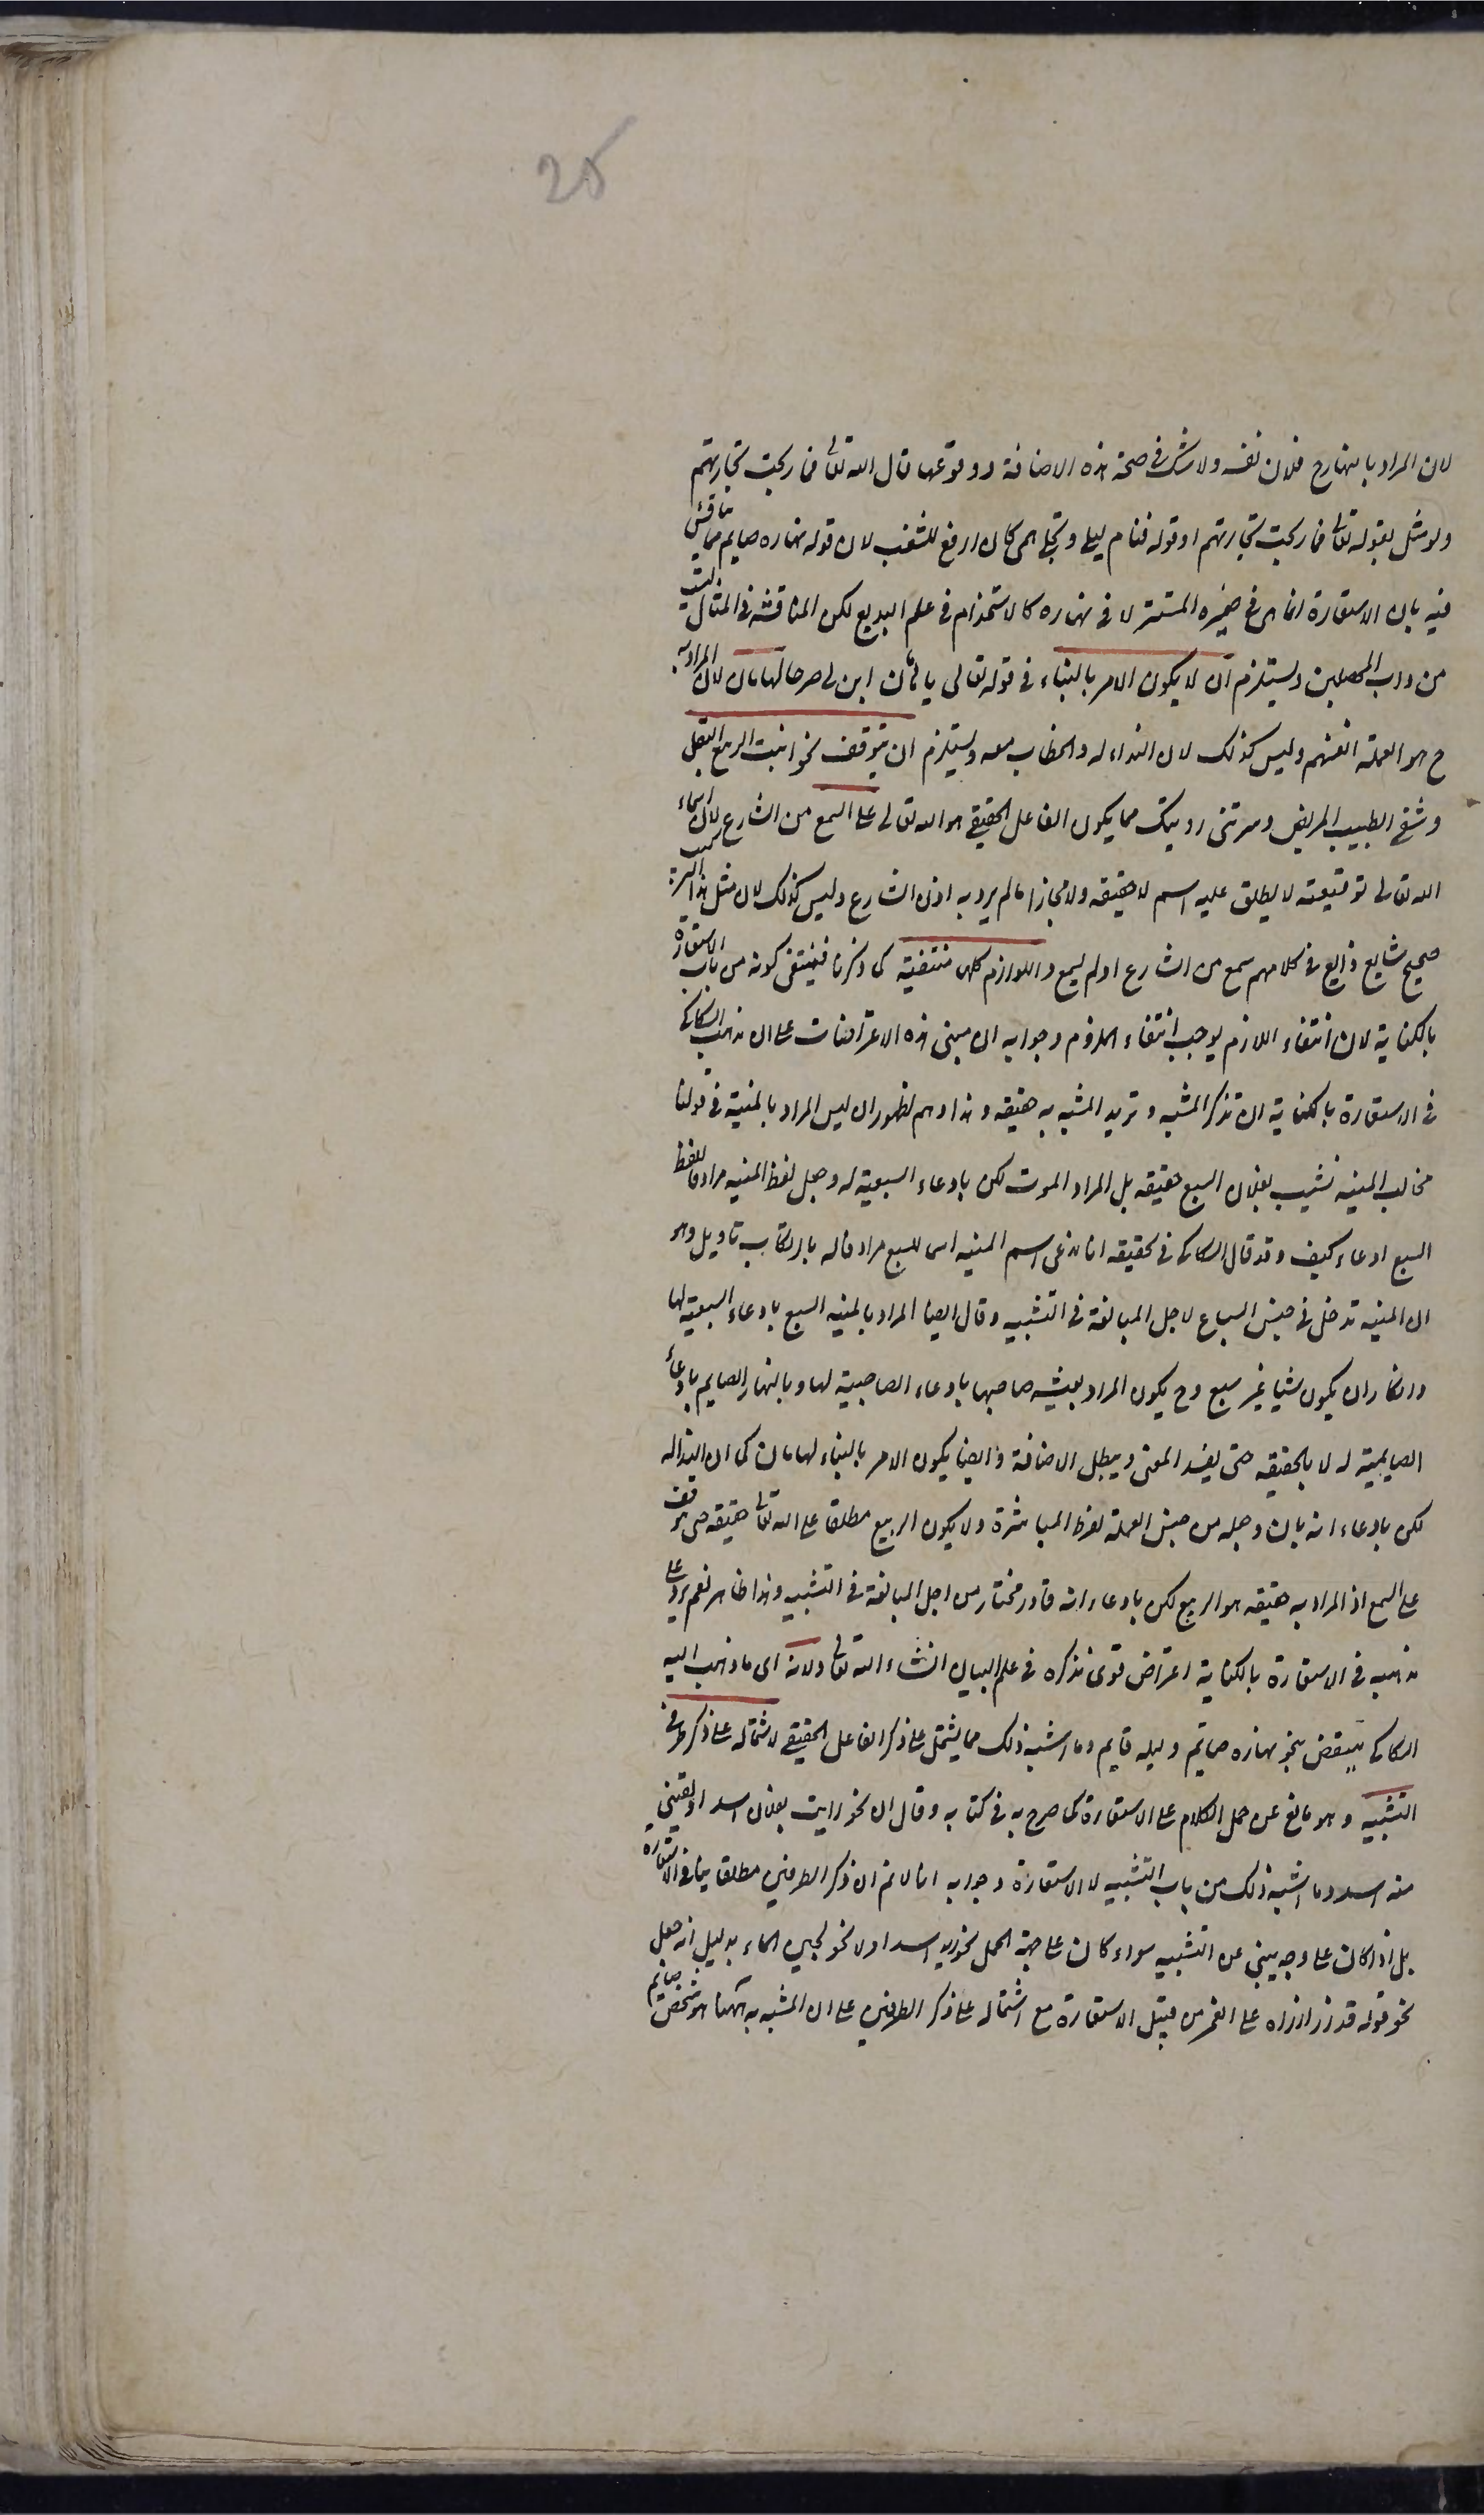 25
لان المراد بالنهار ح فلان نفسه ولا شك فى صحة هذه الاضافة ووقوعها قال الله تعالى فما ربحت تجارتهم
ولو مثل بقوله تعالى فما ربحت تجارتهم او قوله فنام ليلى وتجلى همى كان ارفع للشغب لان قوله نهاره صايم مما يناقش
فيه بان الاستعارة انما هى فى ضميره المستتر لا فى نهاره كالاستخدام فى علم البديع لكن المناقشة فى المثال ليست
من داب المحصلين ويستلزم ان لا يكون الامر بالبناء فى قوله تعالى يا هامان ابن لى صرحا لهامان لان المراد به
ح هو العملة انفسهم وليس كذلك لان النداء له والخطاب معه ويستلزم ان يتوقف نحو انبت الربيع البقل
وشفى الطبيب المريض وسرتنى رويتك مما يكون الفاعل الحقيقى هو الله تعالى على السمع من الشارع لان اسماء
الله تعالى توقيفية لا يطلق عليه اسم لا حقيقة ولا مجازا ما لم يرد به اذن الشارع وليس كذلك لان مثل هذا التركيب
صحيح شايع ذايع فى كلامهم سمع من الشارع او لم يسمع واللوازم كلها منتفية كما ذكرنا فينتفى كونه من باب الاستعارة
بالكناية لان انتفاء اللازم يوجب انتفاء الملزوم وجوابه ان مبنى هذه الاعتراضات على ان مذهب السكاكى
فى الاستعارة بالكناية ان تذكر المشبه وتريد المشبه به حقيقة وهذا وهم لظهور ان ليس المراد بالمنية فى قولنا
مخالب المنيه نشبت بفلان السبع حقيقة بل المراد الموت لكن بادعاء السبعية له وجعل لفظ المنيه مرادفا للفظ
السبع ادعاء كيف وقد قال السكاكى فى تحقيقه انا ندعى اسم المنيه اسما للسبع مرادفا له بارتكاب تاويل وهو
ان المنيه تدخل فى جنس السباع لاجل المبالغة فى التشبيه وقال ايضا المراد بالمنيه السبع بادعاء السبعية لها
وانكار ان يكون شيا غير سبع وح يكون المراد بعيشه صاحبها بادعاء الصاحبية لها وبالنهار الصايم بادعاء
الصايمية له لا بالحقيقه حتى يفسد المعنى ويبطل الاضافة وايضا يكون الامر بالبناء لهامان كما ان النداء له
لكن بادعاء انه بان وجعله من جنس العملة لفرط المباشرة ولا يكون الربيع مطلقا على الله تعالى حقيقه حتى يتوقف
على السمع اذ المراد به حقيقه هو الربيع لكن بادعاء انه قادر مختار من اجل المبالغة فى التشبيه وهذا ظاهر نعم يرد على
مذهبه فى الاستعارة بالكناية اعتراض قوى نذكره فى علم البيان انشاء الله تعالى ولانه اى ما ذهب اليه
السكاكى ينتقض بنحو نهاره صايم وليله قايم وما اشبه ذلك مما يشتمل على ذكر الفاعل الحقيقى لاشتماله على ذكر طرفى
التشبيه وهو مانع عن حمل الكلام على الاستعارة كما صرح به فى كتابه وقال ان نحو رايت بفلان اسدا ولقينى
منه اسد وما اشبه ذلك من باب التشبيه لا الاستعارة وجوابه انا لا نم ان ذكر الطرفين مطلقا ينافى الاستعارة
بل اذا كان على وجه ينبئ عن التشبيه سواء كان على جهة الحمل نحو زيد اسد او لا نحو لجين الماء بدليل انه جعل
نحو قوله قد زر ازراره على القمر من قبيل الاستعارة مع اشتماله على ذكر الطرفين على ان المشبه به ههنا هو شخص صايم